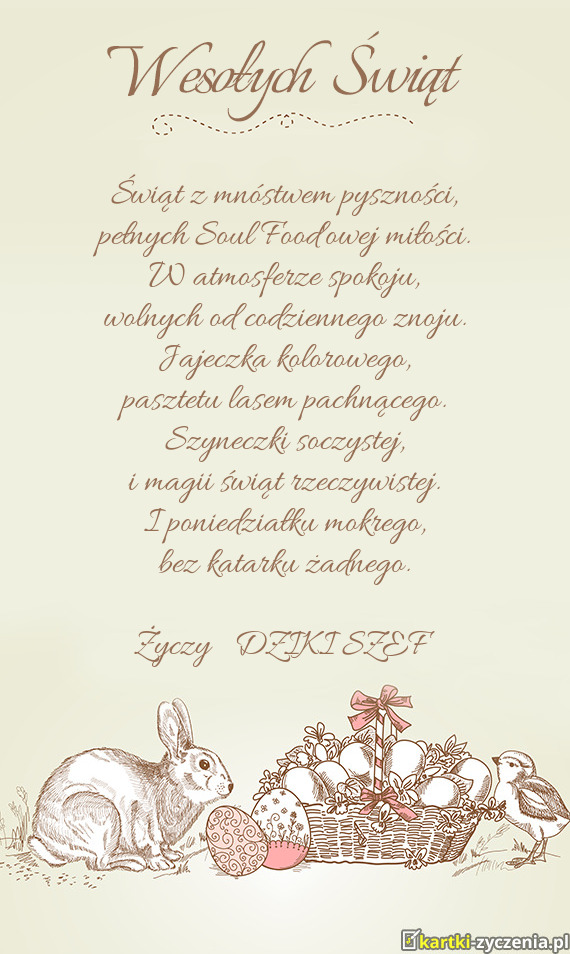 Wesołych Świąt
Świąt z mnóstwem pyszności,
pełnych Soul Food'owej miłości.
W atmosferze spokoju,
wolnych od codziennego znoju.
Jajeczka kolorowego,
pasztetu lasem pachnącego.
Szyneczki soczystej,
i magii świąt rzeczywistej.
I poniedziałku mokrego,
bez katarku żadnego.
Życzy DZIKI SZEF
kartki-zyczenia.pl